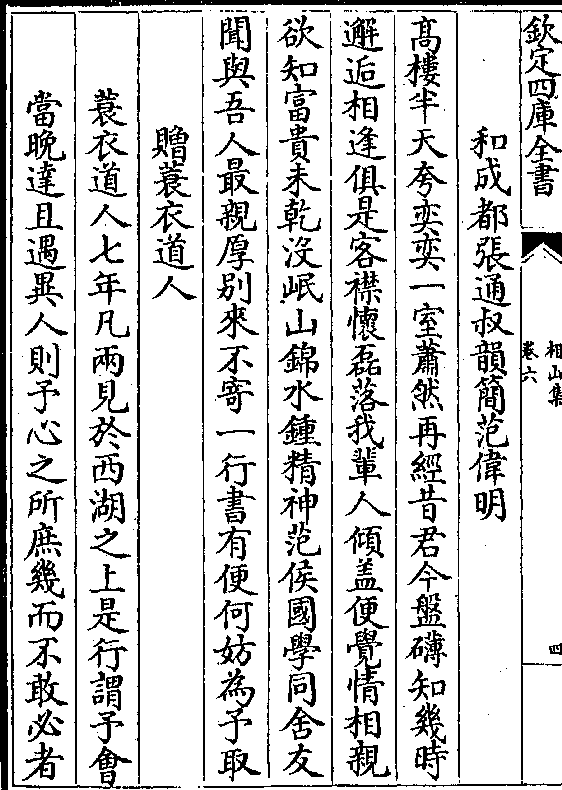 欽定四庫全書
相山集
卷六
四
和成都張通叔韻簡范偉明
髙樓半天夸奕奕一室蕭然再經昔君今盤礴知幾時
邂逅相逢俱是客襟懷磊落我輩人傾盖便覺情相親
欲知富貴未乾沒岷山錦水鍾精神范侯國學同舍友
聞與吾人最親厚别來不寄一行書有便何妨為予取
贈蓑衣道人
蓑衣道人七年凡兩見於西湖之上是行謂予會
當晚達且遇異人則予心之所庶幾而不敢必者